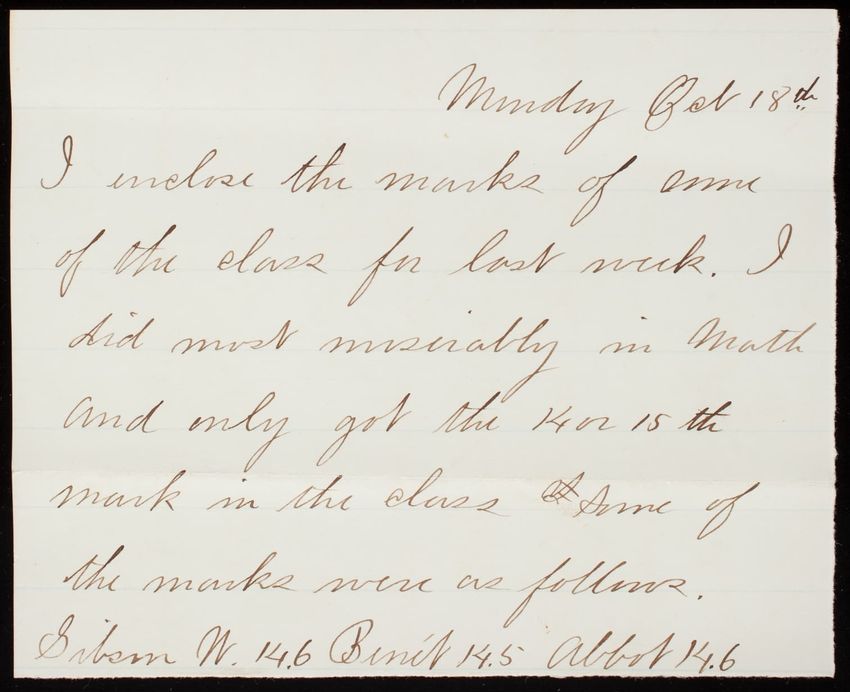 Monday Oct 18th
I enclose the marks of some
of the class for last week. I
did most miserably in Math
and only got the 14 or 15 th
mark in the class & Some of
the marks were as follows.
Gibson W. 14.6 Benét 14.5 Abbot 14.6